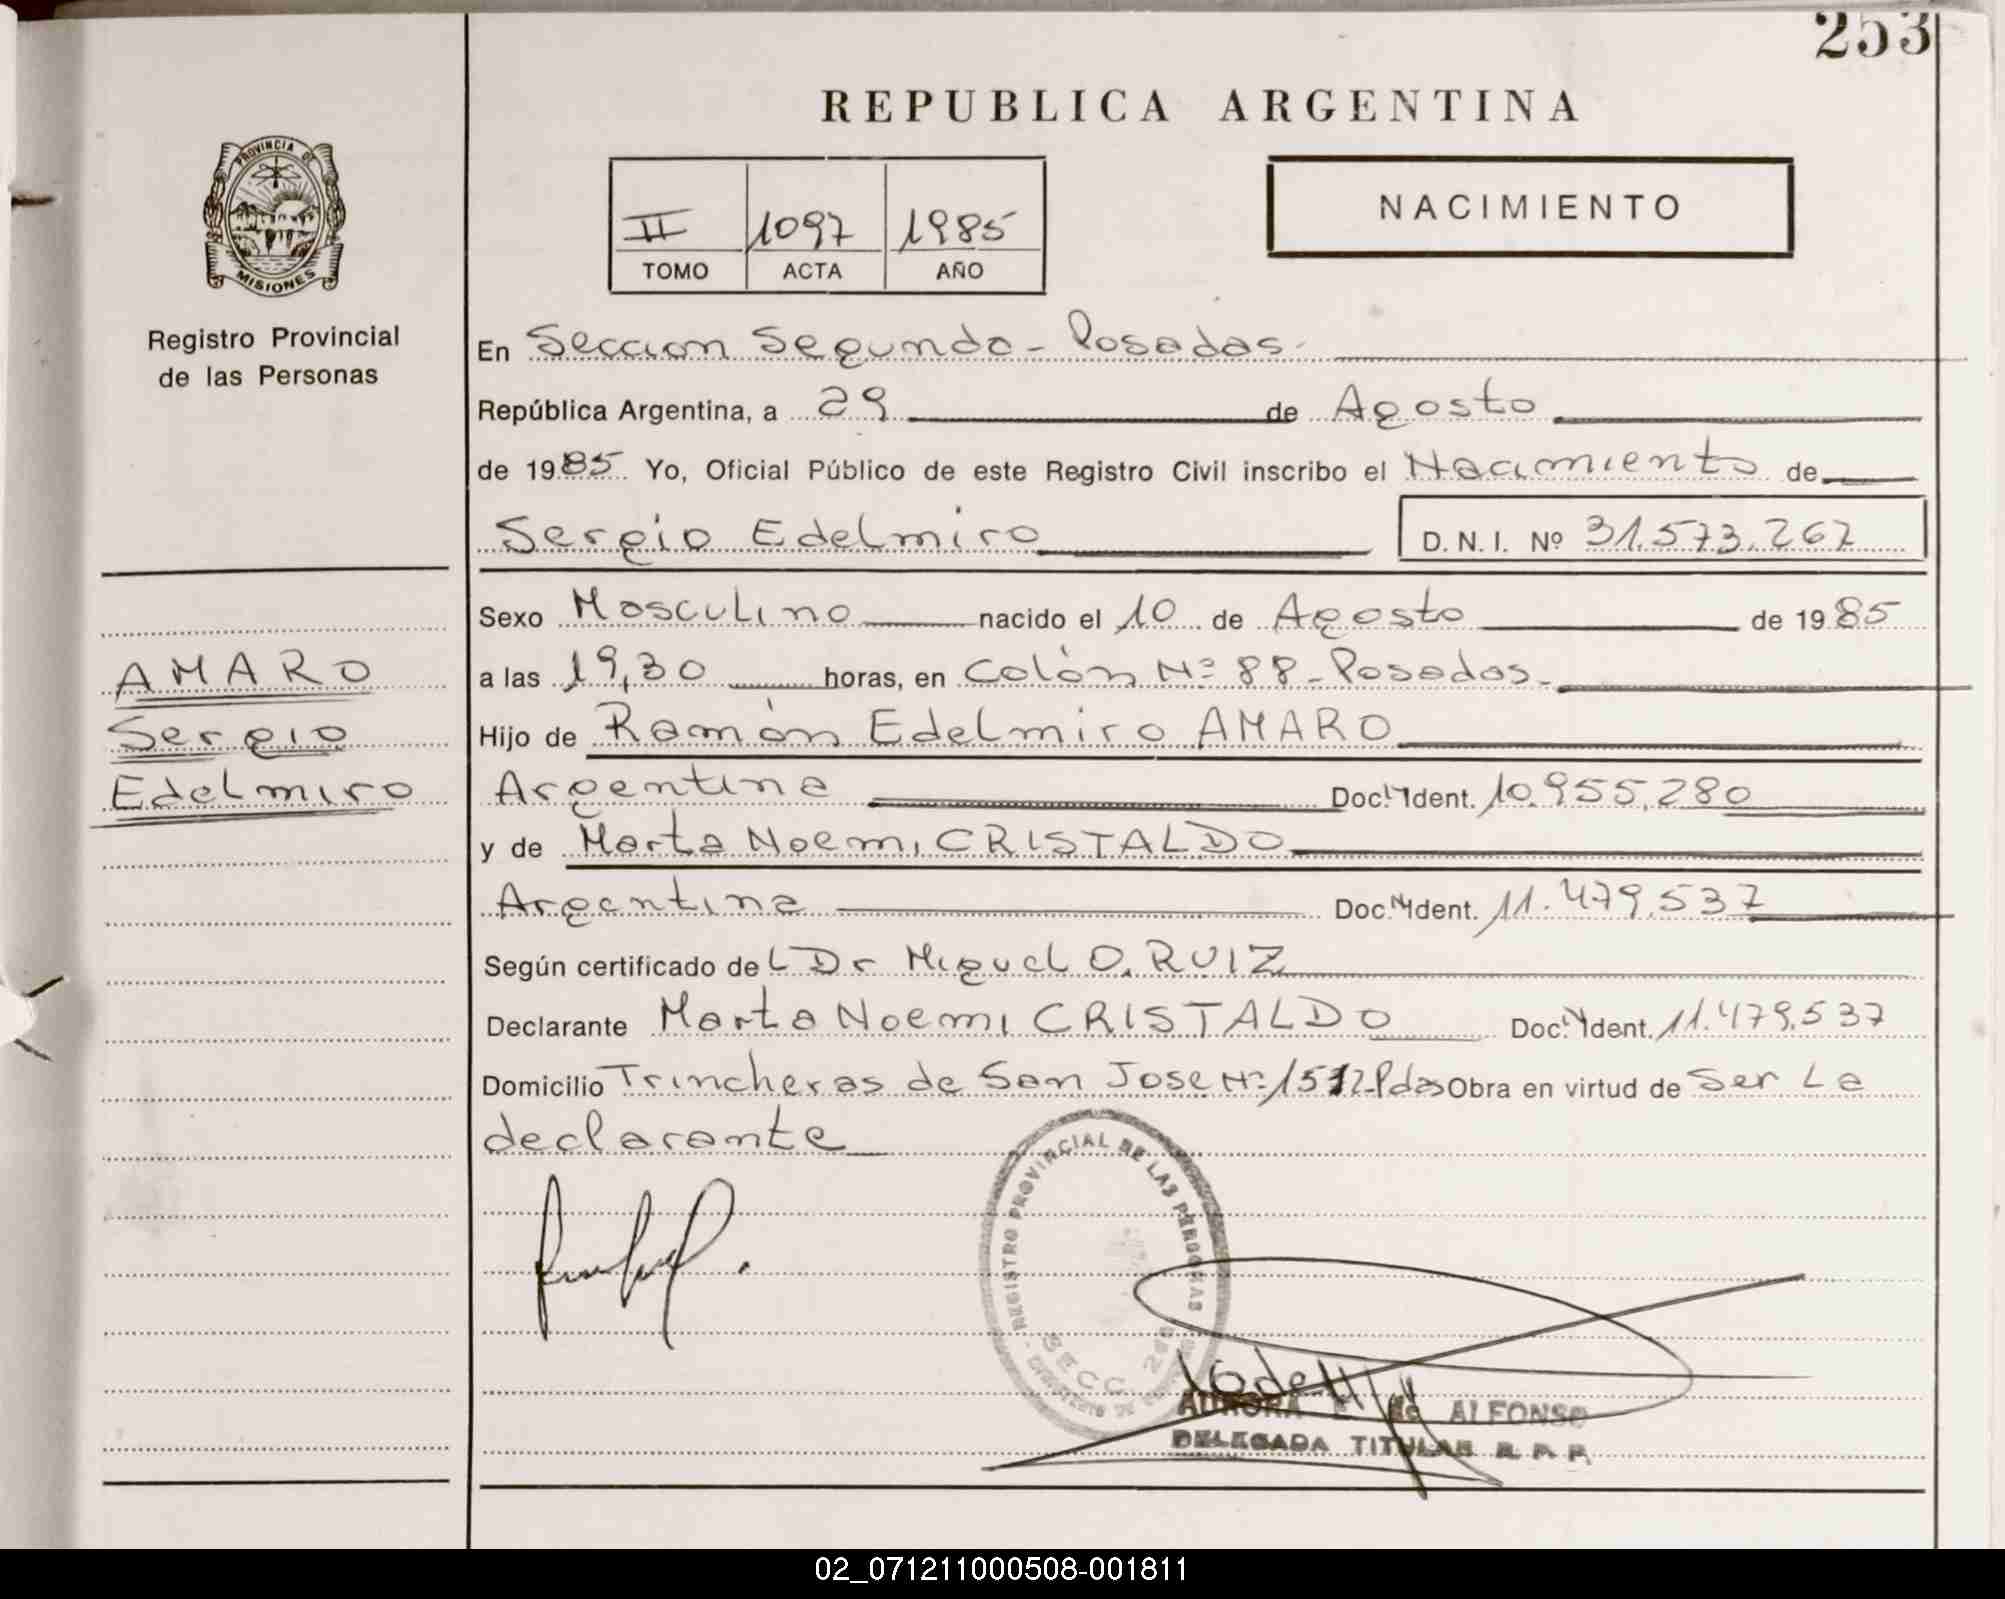 253
REPUBLICA ARGENTINA
PROVINCIA DE
MISIONES
II 1097 1985
TOMO ACTA AÑO
NACIMIENTO
Registro Provincial
de las Personas
En Seccion Segunda - Posadas.
República Argentina, a 29 de Agosto
de 1985. Yo, Oficial Público de este Registro Civil inscribo el Nacimiento de
Sergio Edelmiro D. N. I. Nº 31.573.267
Sexo Masculino nacido el 10 de Agosto de 1985
AMARO
Sergio
Edelmiro
a las 19,30 horas, en Colón Nº 88 - Posadas.
Hijo de Ramón Edelmiro AMARO
Argentina Doc. Ident. 10.955.280
y de Marta Noemi CRISTALDO
Argentina Doc. Ident. 11.479.537
Según certificado del Dr Miguel O. RUIZ
Declarante Marta Noemi CRISTALDO Doc. Ident. 11.479.537
Domicilio Trincheras de San Jose Nº Pdas Obra en virtud de Ser La
declarante
REGISTRO PROVINCIAL DE LAS PERSONAS
SECC. 2da
AURORA E de ALFONSO
DELEGADA TITULAR R. P. P.
02_071211000508-001811